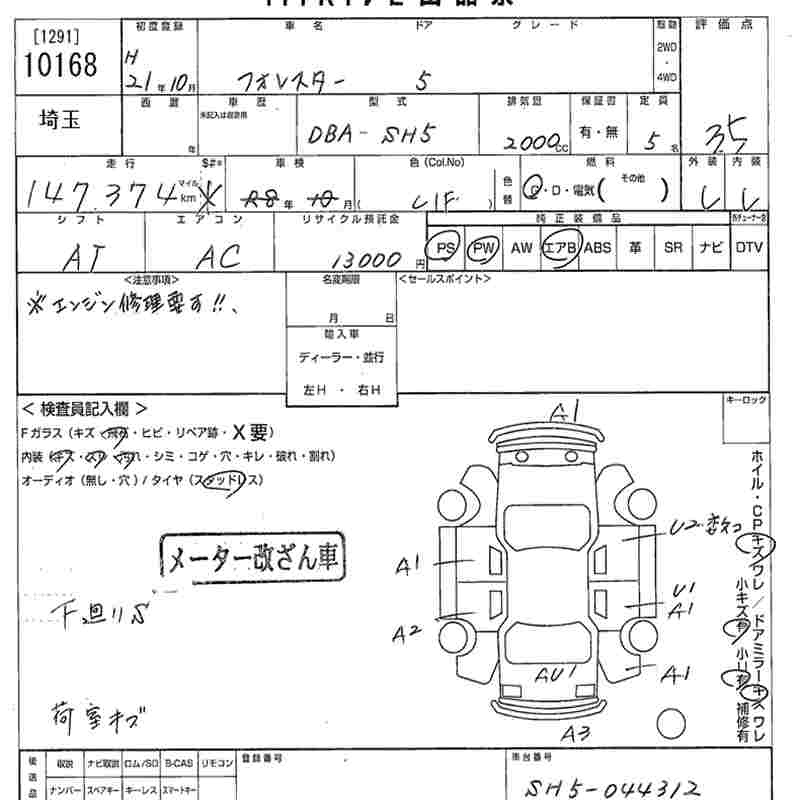 [1291]
10168
初度登録
車名
ドア
グレード
駆動
評価点
H
21年10月
フォレスター
5
2WD
・
4WD
埼玉
西暦
車歴
型式
排気量
保証書
定員
未記入は自家用
年
DBA-SH5
2000cc
有・無
5名
3.5
走行
$#*
車検
色(Col.No)
燃料
外装
内装
147,374
マイル
km
R8年10月
色替
G・D・電気(その他)
シフト
エアコン
リサイクル預託金
純正装備品
AT
AC
13000円
PS
PW
AW
エアB
ABS
革
SR
ナビ
DTV
<注意事項>
名変期限
<セールスポイント>
※エンジン修理要す!!、
月 日
輸入車
ディーラー・並行
左H ・ 右H
<検査員記入欄>
キーロック
Fガラス(キズ・飛石・ヒビ・リペア跡・X要)
内装(キズ・スリ・汚れ・シミ・コゲ・穴・キレ・破れ・割れ)
オーディオ(無し・穴)/タイヤ(スタッドレス)
メーター改ざん車
下廻りS
荷室キズ
A1
U2
A1
U1
A1
A2
AU1
A1
A3
ホイル・CPキズワレ/ドアミラーキズワレ
小キズ有 小U有 補修有
後送品
取説
ナビ取説
ロム/SD
B-CAS
リモコン
登録番号
車台番号
ナンバー
スペアキー
キーレス
スマートキー
SH5-044312